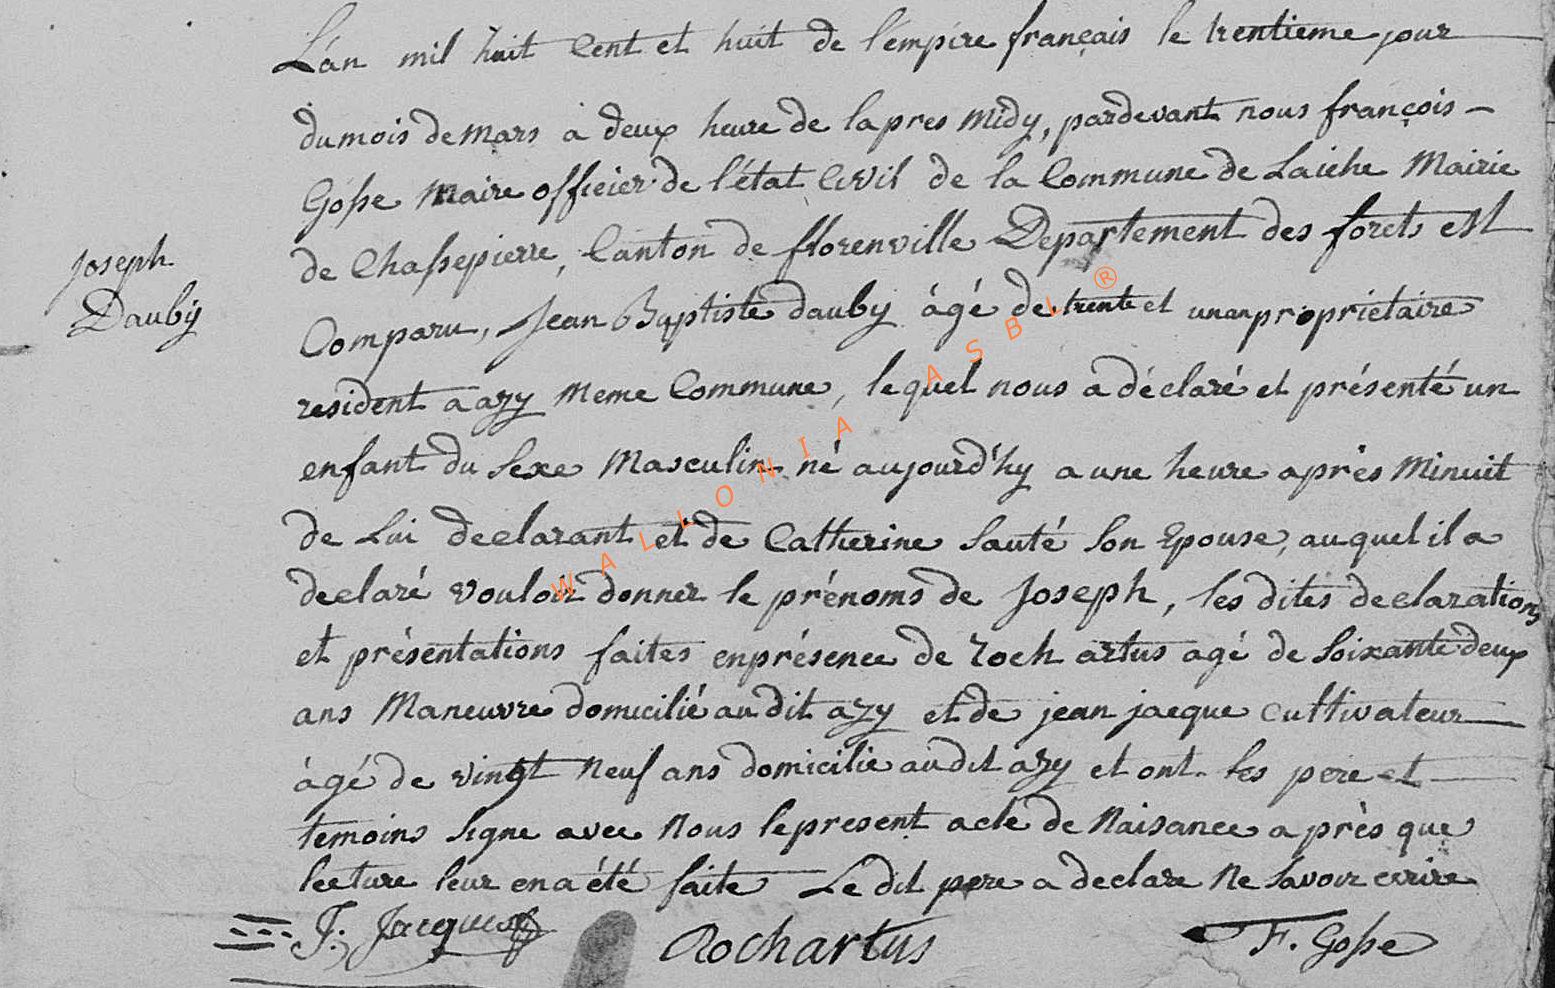 L'an mil huit Cent et huit de l'émpire français le trentieme jour
du mois de mars à deux heure de lapres midy, pardevant nous françois -
Gosse Maire officier de l'état Civil de la Commune de Laiche Mairie
de Chassepierre, Canton de florenville Departement des forets est
Joseph
Dauby
Comparu, Jean Baptiste dauby àgé de trente et un an propriétaire
resident a azy Meme Commune, lequel nous a déclaré et présenté un
enfant du Sexe Masculin né aujourd'hy a une heure après Minuit
de Lui declarant et de Catherine Sauté Son Epouse, auquel il a
declaré vouloir donner le prénoms de Joseph, les dites declarations
et présentations faites en présence de roch artus agé de Soixante deux
ans Maneuvre domicilié au dit azy et de jean jacque cultivateur
àgé de vingt Neuf ans domicilie au dit azy et ont les pere et
temoins Signe avec Nous le present acte de Naisance après que
lecture leur en a été faite Le dit pere a declare Ne Savoir ecrire
J. Jacques Rochartus F. Gosse
WALLONIA ASBL ®